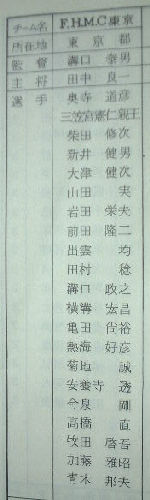 チーム名 F.H.M.C東京
所在地 東京都
監督 溝口泰男
主将 田中良一
選手 奥寺道彦
三笠宮憲仁親王
柴田修次
新井健男
大津健次
山田実
岩田栄夫
前田隆二
出雲均
田村稔
溝口政之
横溝宏昌
亀田尚裕
熱海好彦
菊地誠
安養寺透
今泉剛
高橋直
牧田啓吾
加藤雅昭
青木邦夫